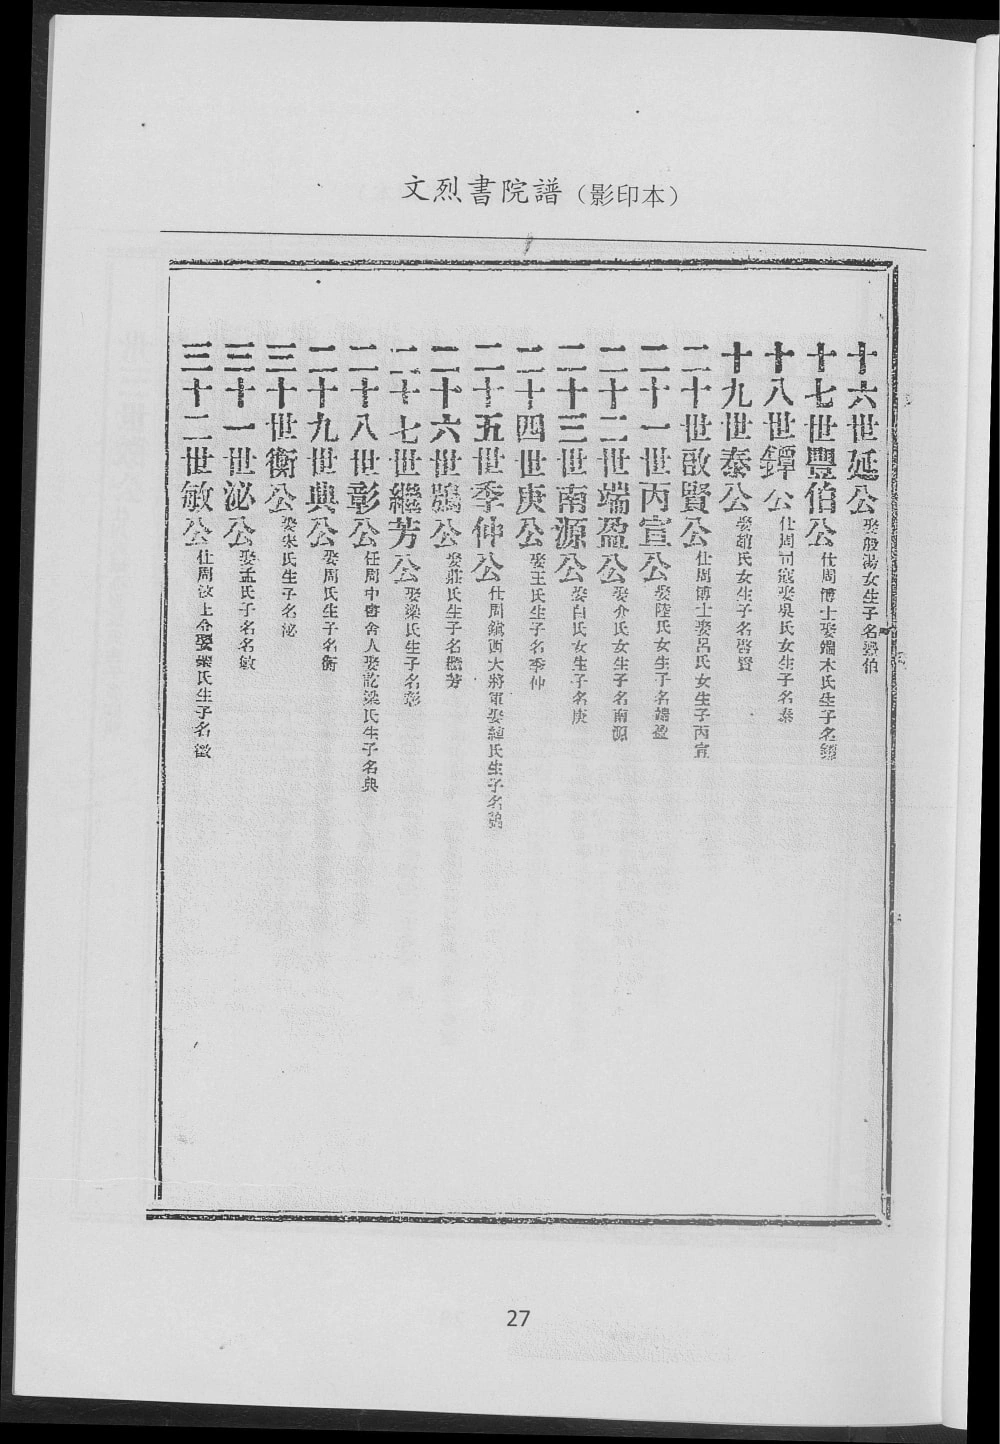 文烈書院譜（影印本）
十六世延公娶殷湯女生子名豐伯
十七世豐伯公仕周博士娶端木氏生子名鐔
十八世鐔公仕周司寇娶吳氏女生子名泰
十九世泰公娶趙氏女生子名啓賢
二十世啟賢公仕周博士娶呂氏女生子丙宣
二十一世丙宣公娶陸氏女生子名端盈
二十二世端盈公娶介氏女生子名南源
二十三世南源公娶白氏女生子名庚
二十四世庚公娶王氏生子名季仲
二十五世季仲公仕周鎭西大將軍娶氏生子名鴞
二十六世鴞公娶莊氏生子名繼芳
二十七世繼芳公娶梁氏生子名彰
二十八世彰公任周中書舍人娶梁氏生子名典
二十九世典公娶周氏生子名衡
三十世衡公娶宋氏生子名泌
三十一世泌公娶孟氏子名名敏
三十二世敏公仕周上令娶氏生子名徵
27